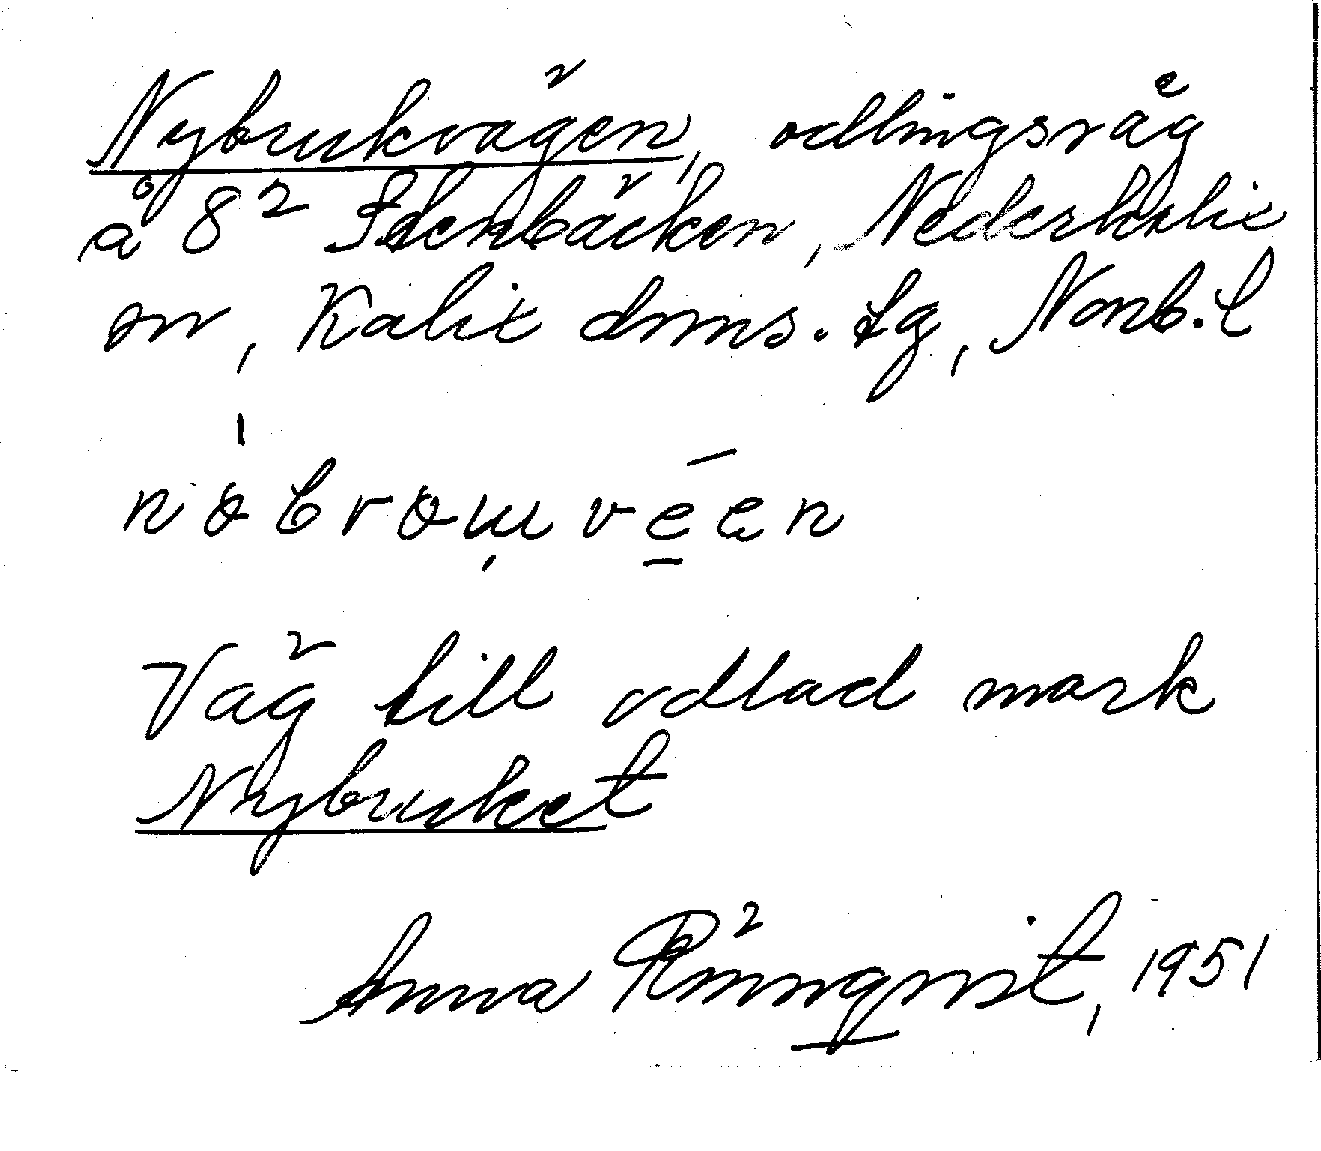 Nybrukvägen, odlingsväg
å 8² Idenbäcken, Nederkalix
sn, Kalix dmns. tg, Norrb. l
Väg till odlad mark
Nybruket
Anna Rönnqvist, 1951